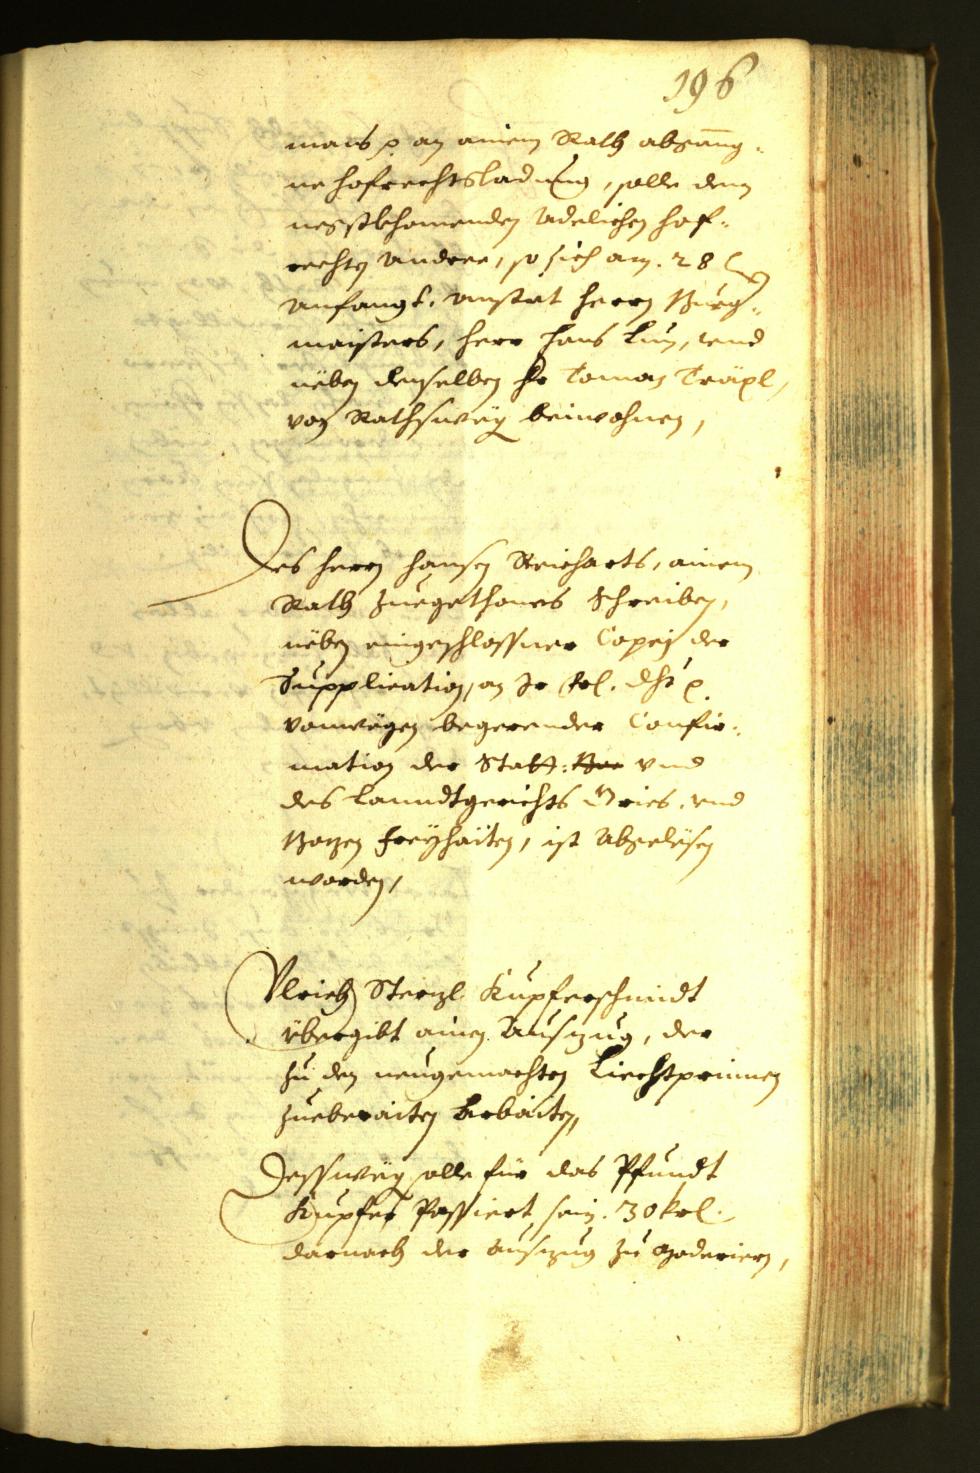 196
mals p an ainem Rath abgang-
ne hofrechtsladung, solle dem
negstkhomenden Adelichen hof-
rechten anderer, so sich am. 28
Anfangt. anstat herrn Burg-
maisters, herr Hans Lun, vnd
neben demselben hr Toman Träxl,
von Rathsweg beiwohnen,
Des herrn Hansen Reicharts, ainem
Rath zuegethones Schreiben,
neben eingeschlossner Copej der
Supplication, an Ir frl. dht p
vonwegen begerender Confir-
mation der Statt: vnd
des Lanndtgerichts Gries. vnd
Bozen Freyhaiten, ist Abgelesen
worden,
Vlrich Sterzl Kupferschmidt
Übergibt ainen Auszug, der
zu den neugemachten Liechtprinnen
zueberaiten Arbaiten,
Dessweg solle für das Pfundt
Kupfer Passiert sein. 30 krl.
darnach der Auszug zu Moderiern,